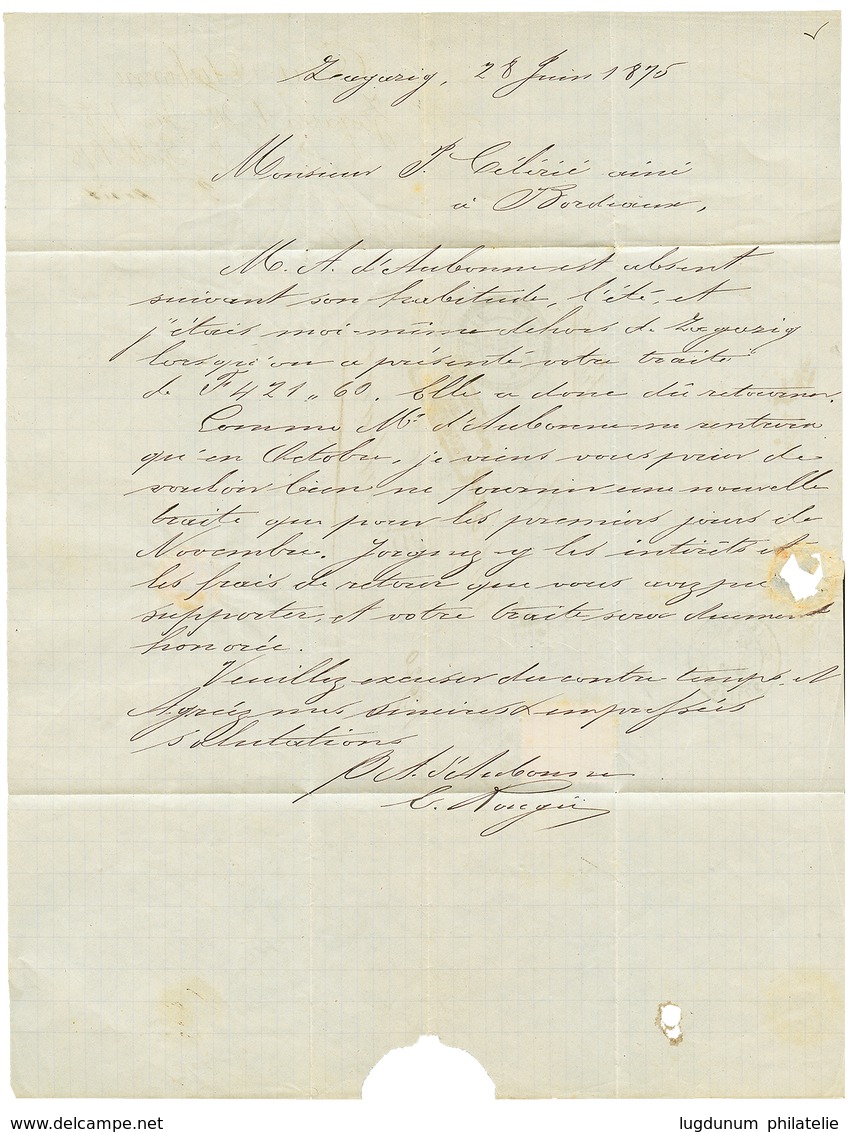 Zagazig, 28 Juin 1875
Monsieur P. Célérié ainé
à Bordeaux,
M. A. d'Aubonne est absent
suivant son habitude, l'été, et
j'étais moi-même dehors de Zagazig
lorsqu'on a présenté votre traite
de F 421 ,, 60. Elle a donc dû retourner.
Comme Mr d'Aubonne ne rentrera
qu'en Octobre, je viens vous prier de
vouloir bien ne fournir une nouvelle
traite que pour les premiers jours de
Novembre. Joignez-y les intérêts et
les frais de retour que vous avez pu
supporter, et votre traite sera duement
honorée.
Veuillez excuser du contre temps et
Agréez mes sincères & empressées
salutations
P A. d'Aubonne
www.delcampe.net
lugdunum philatelie